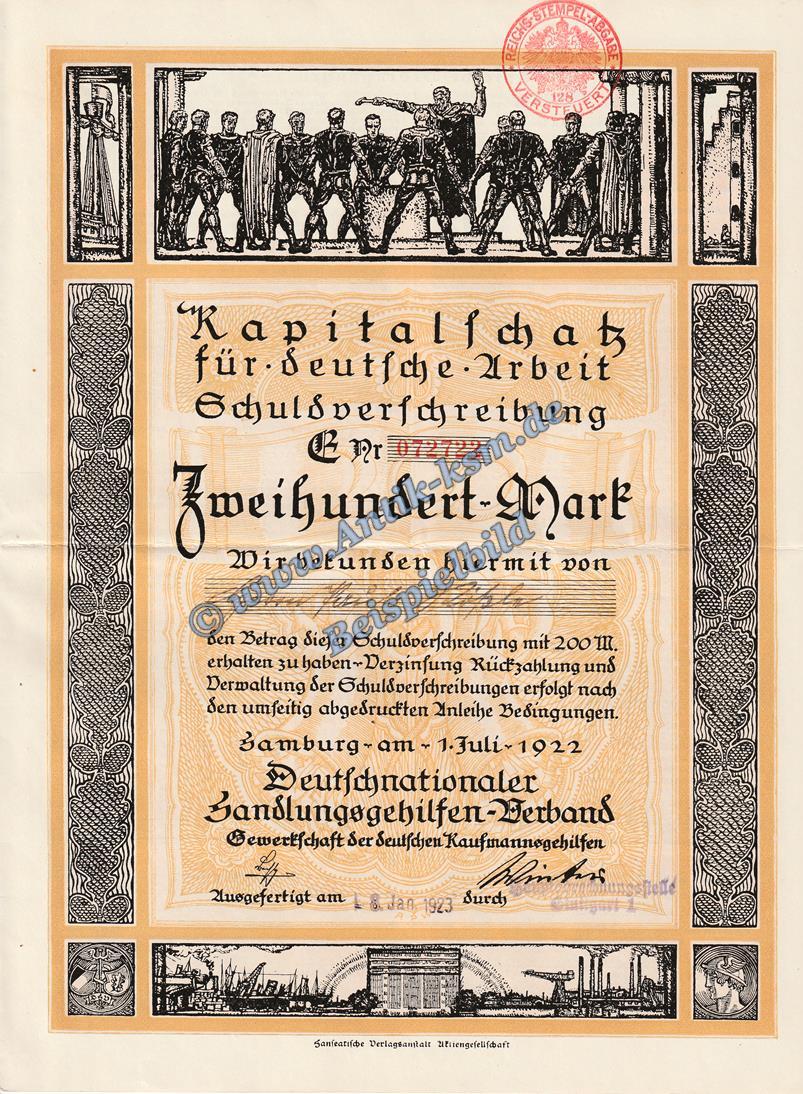 REICHS-STEMPEL-ABGABE
128
VERSTEUERT
Kapitalschatz
für·deutsche·Arbeit
Schuldverschreibung
E Nr 072722
Zweihundert-Mark
Wir bekunden hiermit von
den Betrag dieser Schuldverschreibung mit 200 M.
erhalten zu haben-Verzinsung Rückzahlung und
Verwaltung der Schuldverschreibungen erfolgt nach
den umseitig abgedruckten Anleihe Bedingungen.
Hamburg-am-1.Juli-1922
Deutschnationaler
Handlungsgehilfen-Verband
Gewerkschaft der deutschen Kaufmannsgehilfen
Ausgefertigt am 8. Jan. 1923 durch
Stuttgart 1
Hanseatische Verlagsanstalt Aktiengesellschaft
© www.Antik-ksm.de
Beispielbild